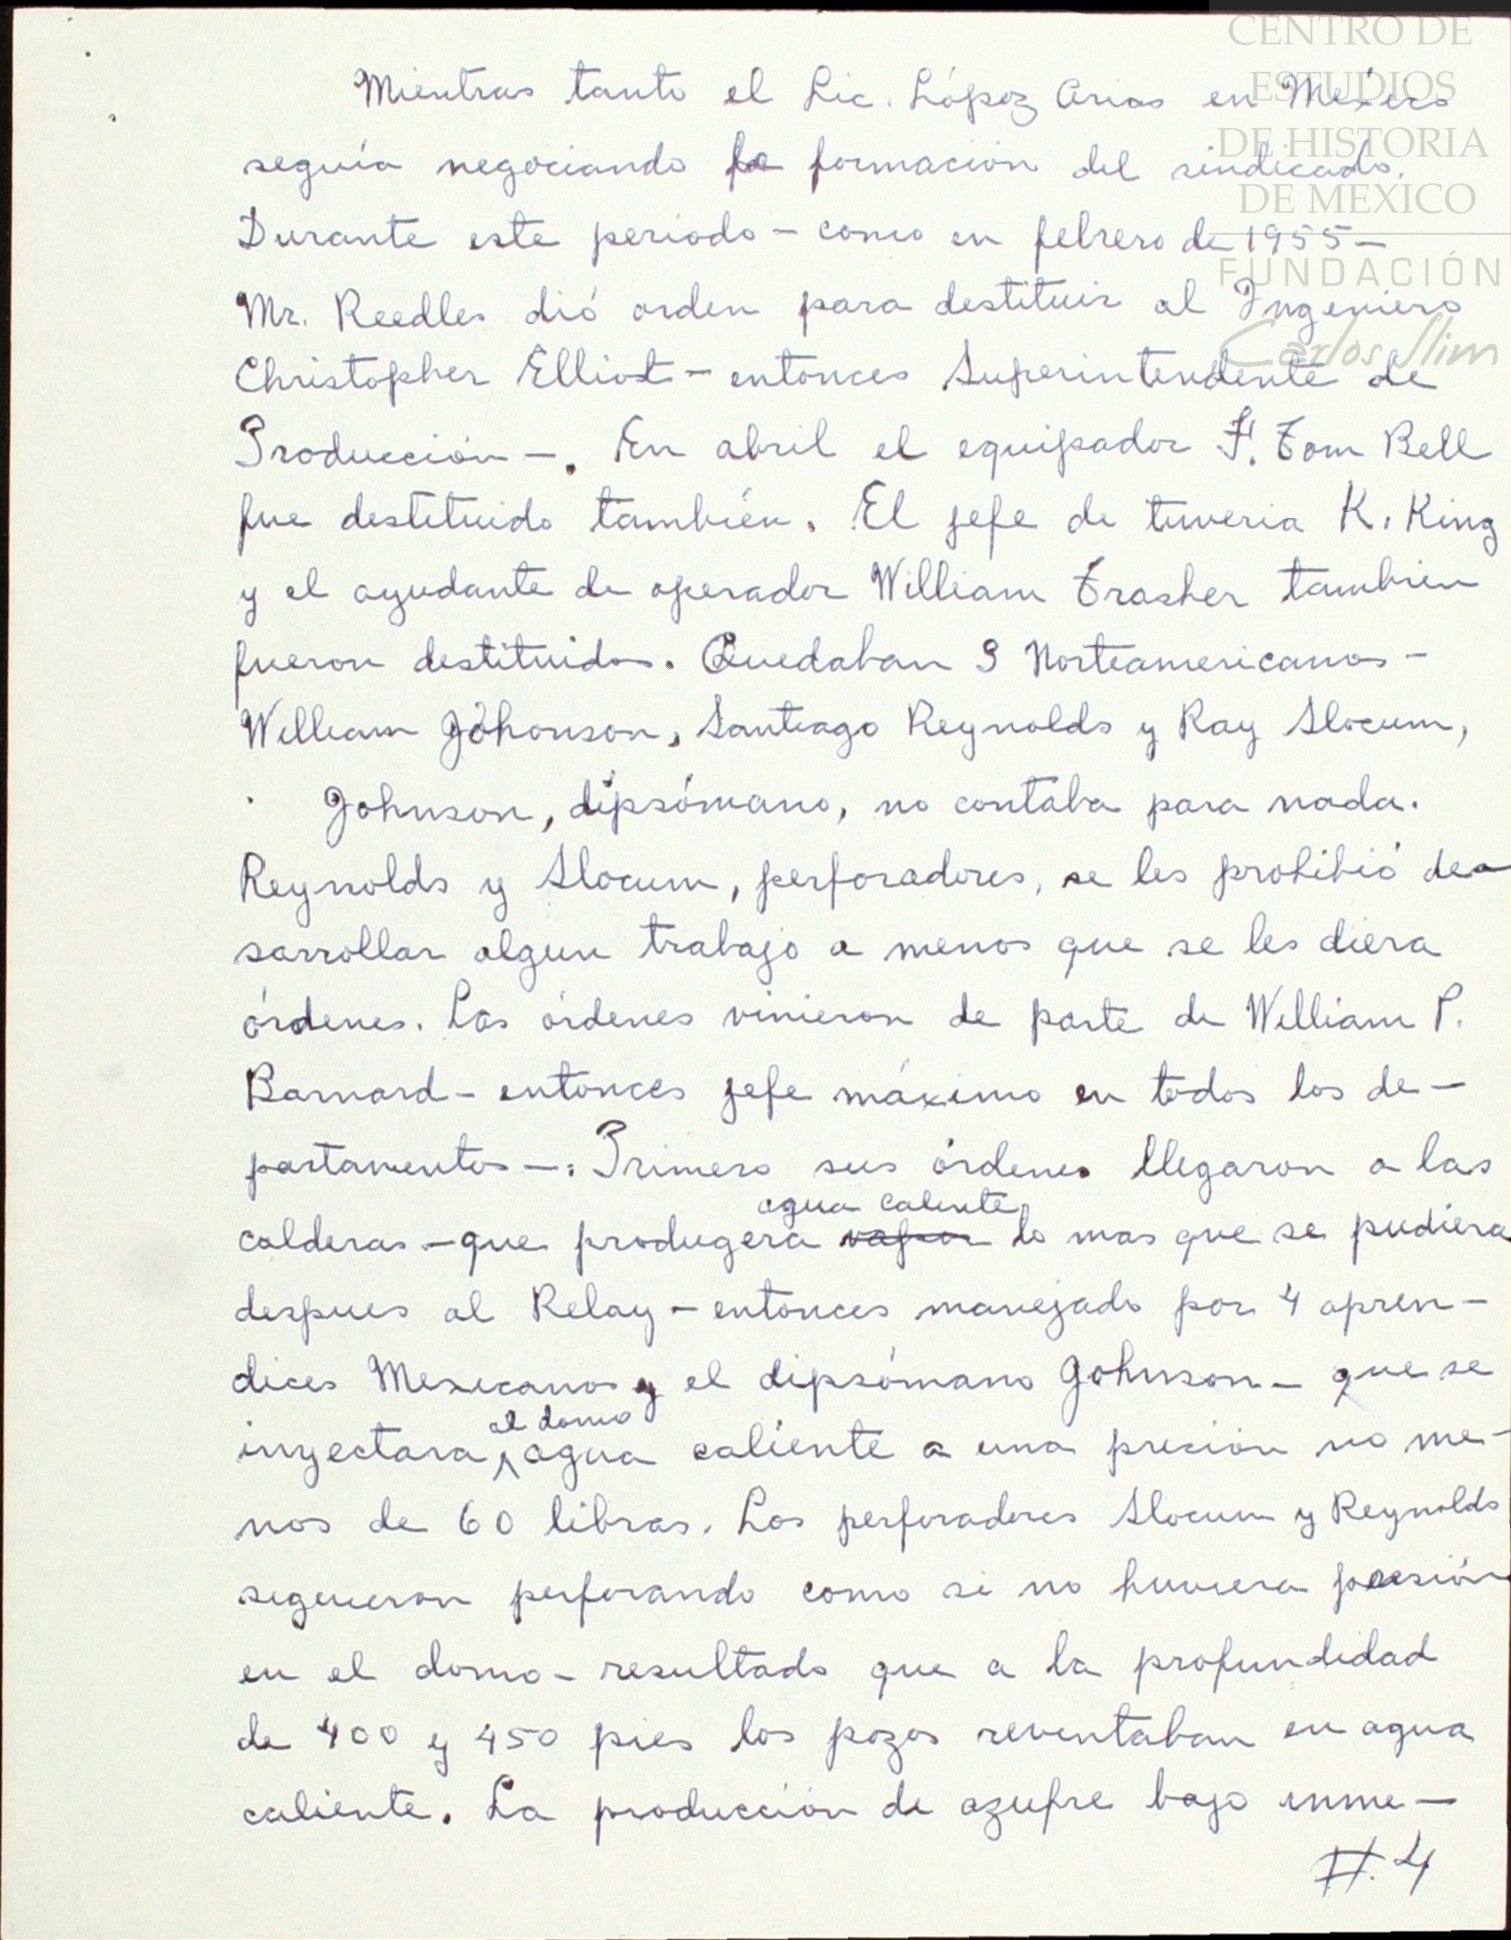 CENTRO DE
ESTUDIOS
DE HISTORIA
DE MEXICO
FUNDACIÓN
Carlos Slim
Mientras tanto el Lic. López Arias en México
seguía negociando la formación del sindicado.
Durante este periodo - como en febrero de 1955 -
Mr. Reedles dió orden para destituir al Ingeniero
Christopher Elliot - entonces Superintendente de
Producción -. En abril el equipador F. Tom Bell
fue destituido también. El jefe de tuveria K. King
y el ayudante de operador William Trasher tambien
fueron destituidos. Quedaban 3 Norteamericanos -
William Johonson, Santiago Reynolds y Ray Slocum,
Johnson, dipsómano, no contaba para nada.
Reynolds y Slocum, perforadores, se les prohibió de-
sarrollar algun trabajo a menos que se les diera
órdenes. Las órdenes vinieron de parte de William P.
Barnard - entonces jefe máximo en todos los de-
partamentos -: Primero sus órdenes llegaron a las
agua caliente
calderas - que produgera vapor lo mas que se pudiera
despues al Relay - entonces manejado por 4 apren-
dices Mexicanos y el dipsómano Johnson - que se
al domo
inyectara agua caliente a una preción no me-
nos de 60 libras. Los perforadores Slocum y Reynolds
segueron perforando como si no huviera presión
en el domo - resultado que a la profundidad
de 400 y 450 pies los pozos reventaban en agua
caliente. La producción de azufre bajo inme-
#.4